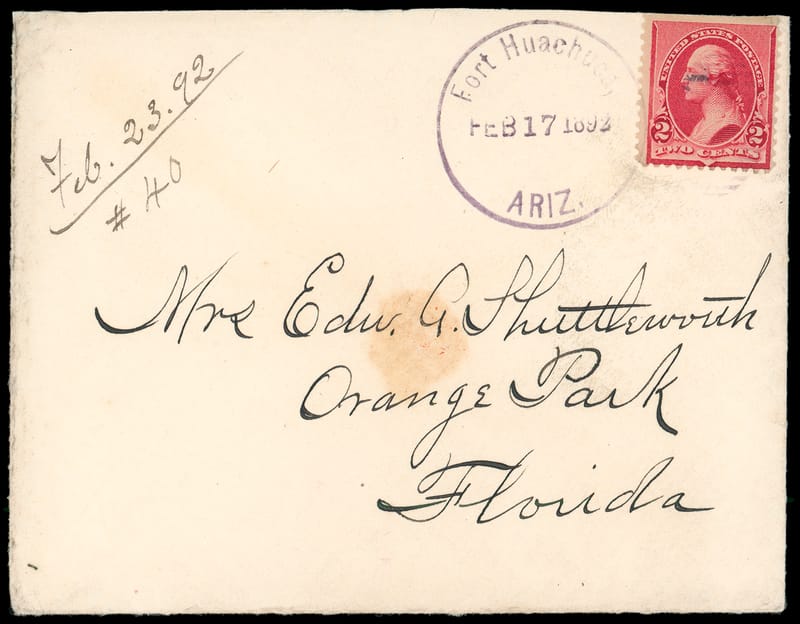 Feb. 23.92
# 40
Fort Huachuca,
FEB 17 1892
ARIZ.
UNITED STATES POSTAGE
2 2
TWO CENTS
Mrs Edw. G. Shuttleworth
Orange Park
Florida